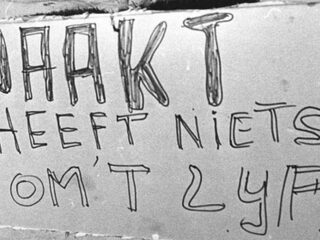 NAAKT
HEEFT NIETS
OM'T LYF